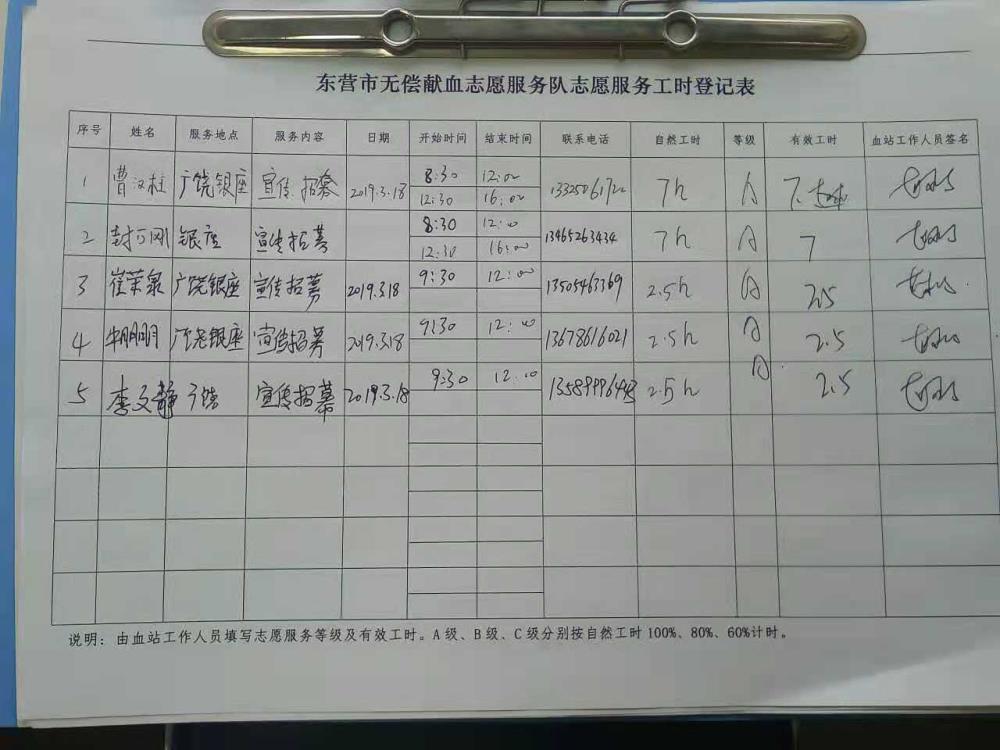 东营市无偿献血志愿服务队志愿服务工时登记表
序号 姓名 服务地点 服务内容 日期 开始时间 结束时间 联系电话 自然工时 等级 有效工时 血站工作人员签名
1 曹汉柱 广饶银座 宣传.招募 2019.3.18 8:30 12:00 7h A 7
12:30 16:00
2 银座 宣传招募 8:30 12:00 13465263434 7h A 7
12:30 16:00
3 崔荣泉 广饶银座 宣传招募 2019.3.18 9:30 12:00 13505463369 2.5h A 2.5
4 牛明明 广饶银座 宣传招募 2019.3.18 9:30 12:00 13678616021 2.5h A 2.5
5 李文静 广饶 宣传招募 2019.3.18 9:30 12:00 2.5h A 2.5
说明：由血站工作人员填写志愿服务等级及有效工时。A级、B级、C级分别按自然工时100%、80%、60%计时。